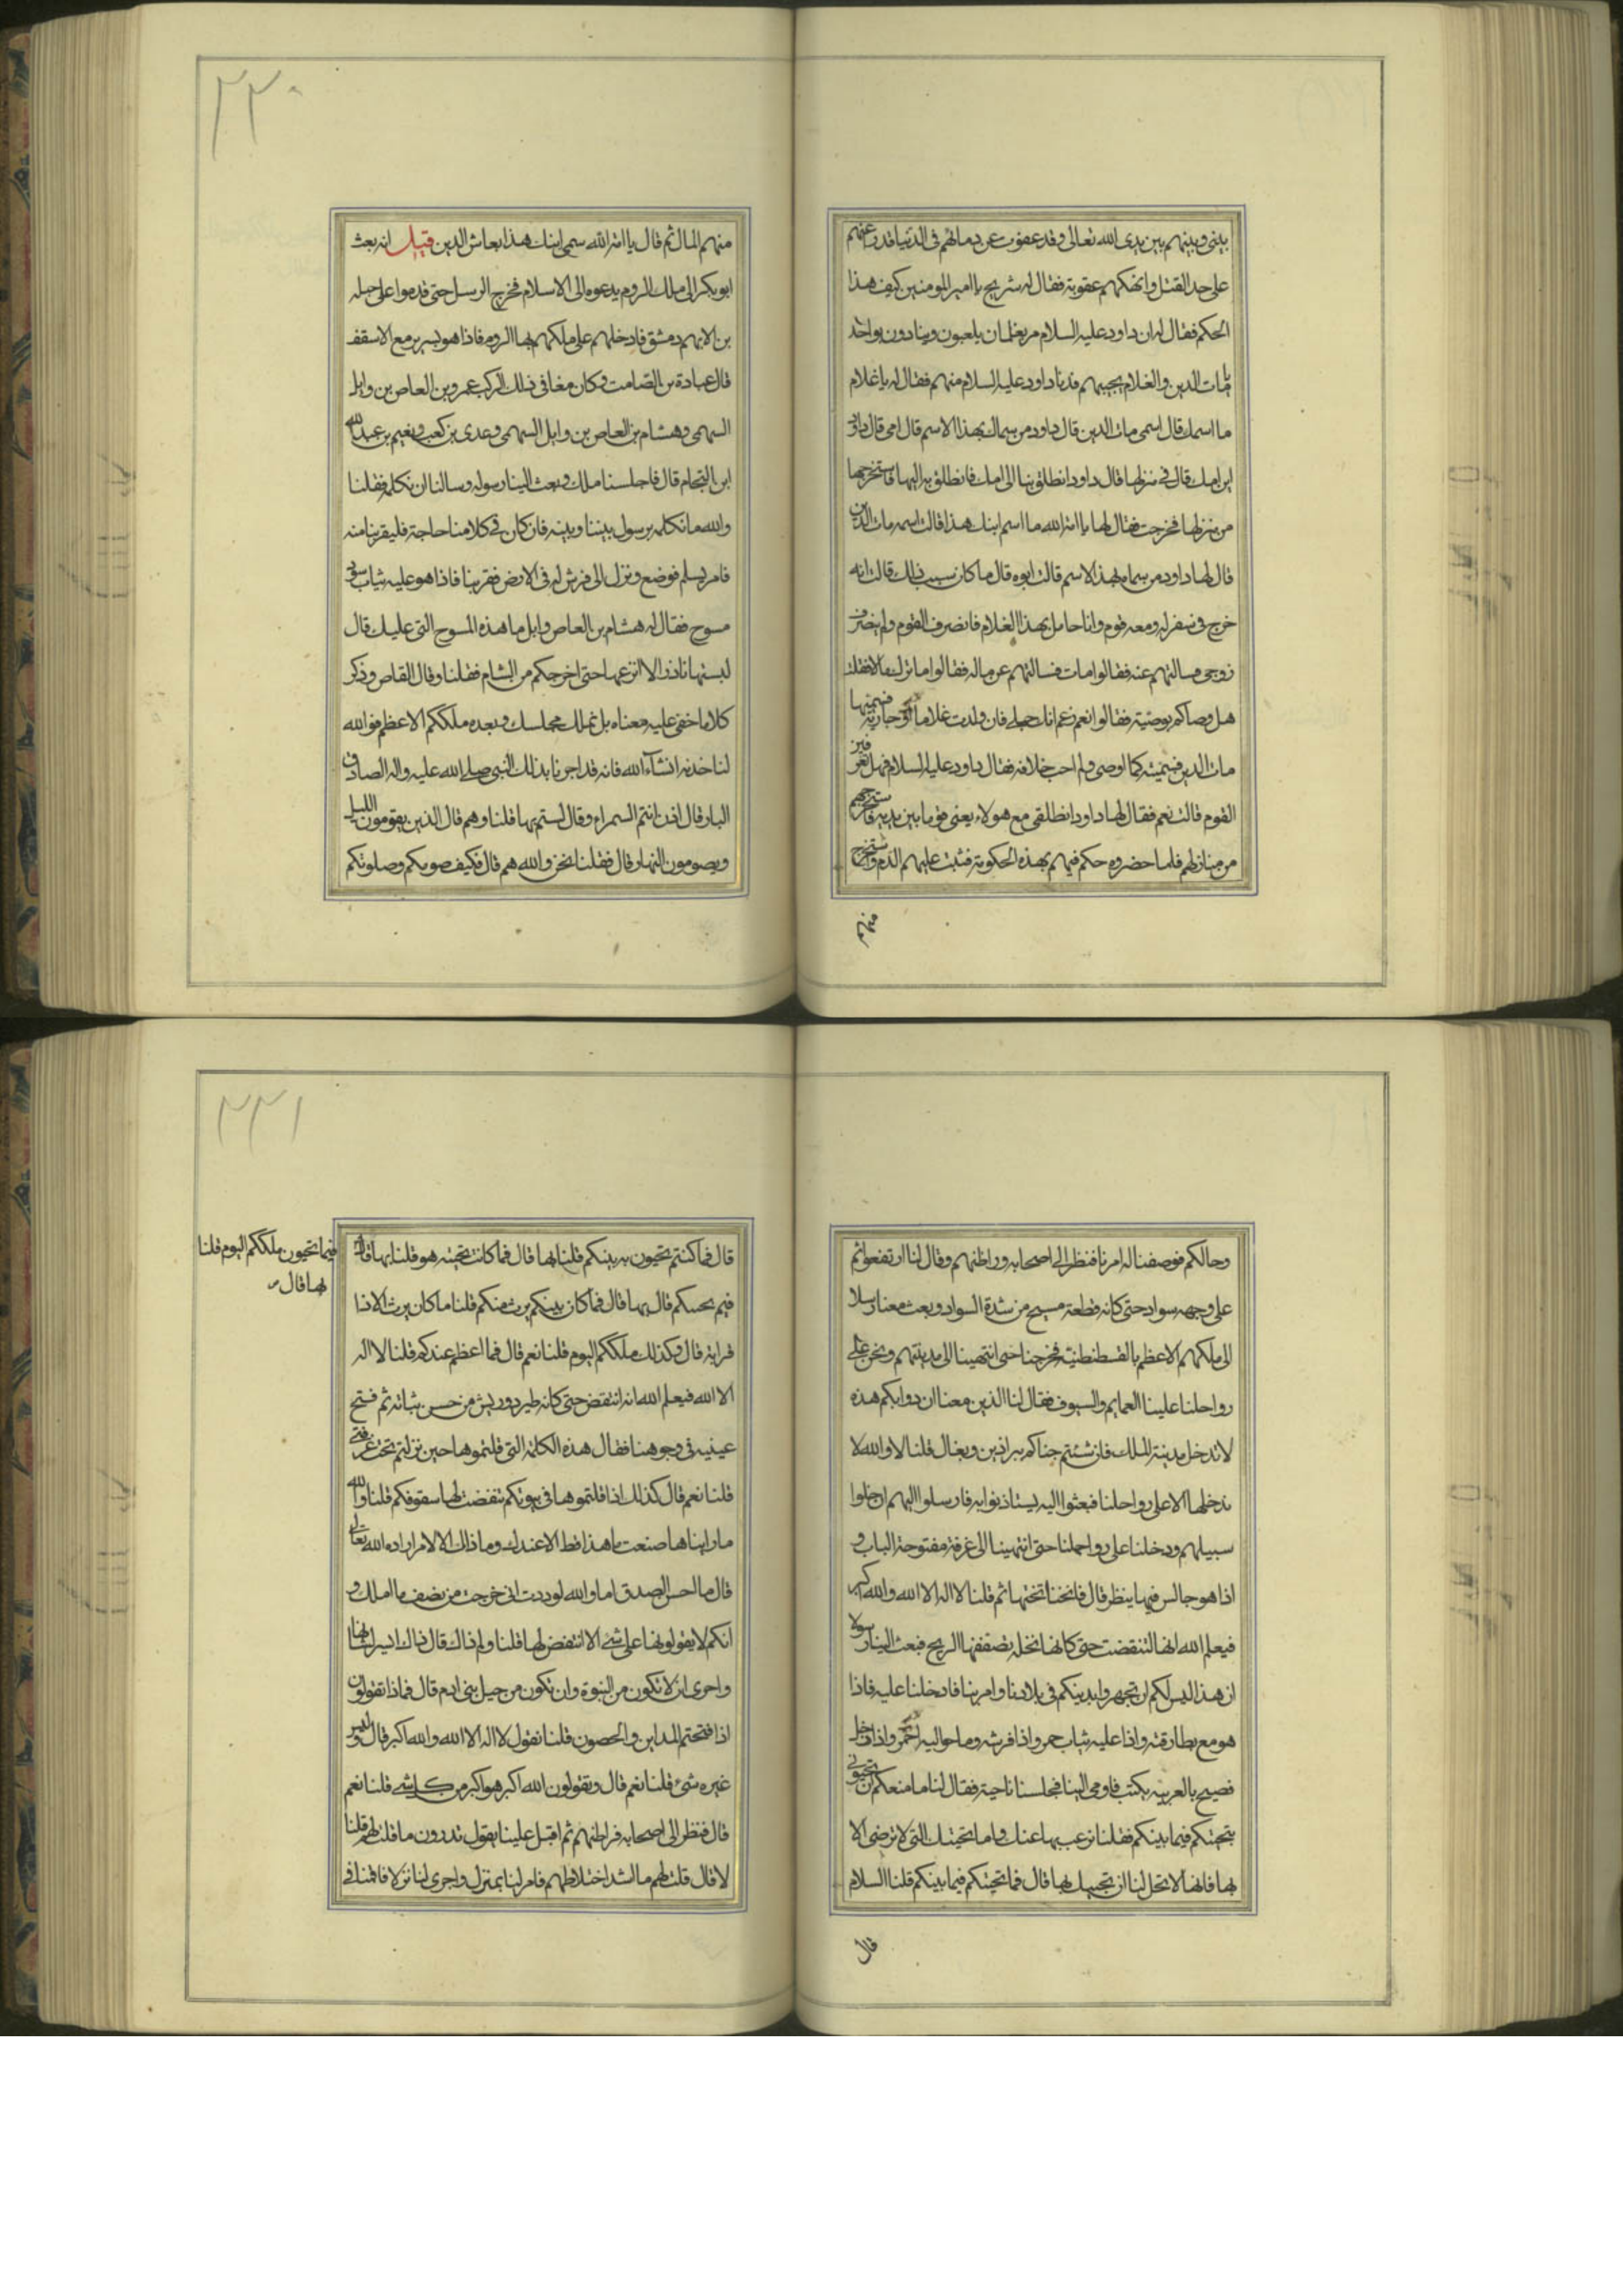 بيني وبينهم بين يدي الله تعالى وقد عفوت عن دمائهم في الدنيا قدرا عنهم
على حد القتل وانهكهم عقوبة فقال له شريح يا امير المومنين كيف هذا
الحكم فقال له ان داود عليه السلام مر بغلمان يلعبون وينادون بواحد
يا مات الدين والغلام يجيبهم فدنا داود عليه السلام منهم فقال له يا غلام
ما اسمك قال اسمي مات الدين قال داود من سماك بهذا الاسم قال امي قال داود
اين امك قال في منزلها قال داود انطلق بنا الى امك فانطلق به اليها فاستخرجها
من منزلها فخرجت فقال لها يا امة الله ما اسم ابنك هذا قالت اسمه مات الدين
قال لها داود من سماه بهذا الاسم قالت ابوه قال ما كان سبب ذلك قالت انه
خرج في سفر له ومعه قوم وانا حامل بهذا الغلام فانصرف القوم ولم ينصرف
زوجي فسالتهم عنه فقالوا مات فسالتهم عن ماله فقالوا ما ترك مالا فقلت
هل وصاكم بوصية فقالوا نعم زعم انك حبلى فان ولدت غلاما او جارية فسميتها
مات الدين فسميته كما اوصى ولم احب خلافه فقال داود عليه السلام فهل تعرفين
القوم قالت نعم فقال لها داود انطلقي مع هولاء يعني قوما بين يديه فاستخرجهم
من منازلهم فلما حضروه حكم فيهم بهذه الحكومة فثبت عليهم الدم واستخرج
منهم
٢٢٠
منهم المال ثم قال يا امة الله سمي ابنك هذا بعاش الدين قيل انه بعث
ابو بكر الى ملك الروم يدعوه الى الاسلام فخرج الرسل حتى قدموا على جبلة
بن الايهم دمشق فادخلهم على ملكهم بها الروم فاذا هو بسرير مع الاسقف
قال عبادة بن الصامت وكان معنا في ذلك الركب عمرو بن العاص بن وايل
السهمي وهشام بن العاص بن وايل السهمي وعدي بن كعب ونعيم بن عبد الله
ابن النحام قال فاجلسنا ملك وبعث الينا رسوله وسالنا ان نكلمه فقلنا
والله ما نكلمه برسول بيننا وبينه فان كان في كلامنا حاجة فليقربنا منه
فامر بسلم فوضع ونزل الى فرش له في الارض فقربنا فاذا هو عليه ثياب سود
مسوح فقال له هشام بن العاص وايل ما هذه المسوح التي عليك قال
لبستها ناذرا لا انزعها حتى اخرجكم من الشام فقلنا وقال القاص وذكر
كلاما خفي عليه معناه بل نملك مجلسك وبعده ملككم الاعظم فوالله
لناخذنه انشاء الله فانه قد اخبرنا بذلك النبي صلى الله عليه واله الصادق
البار قال اذن انتم السمراء وقال لستم بها قلنا وهم قال الذين يقومون الليل
ويصومون النهار قال فقلنا نحن والله هم قال فكيف صومكم وصلوتكم
وحالكم فوصفنا له امرنا فنظر الى اصحابه وراطنهم وقال لنا ارتفعوا ثم
على وجهه سواد حتى كانه قطعة مسح من شدة السواد وبعث معنا رسلا
الى ملكهم الاعظم بالقسطنطنية فخرجنا حتى انتهينا الى مدينتهم ونحن على
رواحلنا علينا العمايم والسيوف فقال لنا الذين معنا ان دوابكم هذه
لا تدخل مدينة الملك فان شئتم جئناكم ببراذين وبغال قلنا لا والله لا
ندخلها الا على رواحلنا فبعثوا اليه يستاذنوا به فارسلوا اليهم ان خلوا
سبيلهم ودخلنا على رواحلنا حتى انتهينا الى غرفة مفتوحة الباب و
اذا هو جالس فيها ينظر قال فانخنا تحتها ثم قلنا لا اله الا الله والله اكبر
فيعلم الله انها لتنقضت حتى كانها نخلة تصفقها الريح فبعث الينا رسولا
ان هذا ليس لكم ان تجهروا بدينكم في بلادنا وامر بنا فادخلنا عليه فاذا
هو مع بطارقته واذا عليه ثياب حمر واذا فرشه وما حواليه احمر واذا رجل
فصيح بالعربية يكتب فاومى الينا فجلسنا ناحية فقال لنا ما منعكم ان تحيوني
بتحيتكم فيما بينكم فقلنا نرغب بها عنك واما تحيتك التي لا ترضى الا
بها فانها لا تحل لنا ان نحييك بها قال فما تحيتكم فيما بينكم قلنا السلام
قال
٢٢١
قال فما كنتم تحيون به نبيكم قلنا بها قال فما كانت تحيته هو قلنا بها قال
فيما تحيون ملككم اليوم قلنا
بها قال
فبم يحييكم قال بها قال فما كان نبيكم يرث منكم قلنا ما كان يرث الا ذا
قرابة قال وكذلك ملككم اليوم قلنا نعم قال فما اعظم عندكم قلنا لا اله
الا الله فيعلم الله انه انتقض حتى كانه طير ذو ريش من حسن ثيابه ثم فتح
عينيه في وجوهنا فقال هذه الكلمة التي قلتموها حين نزلتم تحت غرفتي
قلنا نعم قال كذلك اذا قلتموها في بيوتكم تنقضت لها سقوفكم قلنا والله
ما رايناها صنعت هذا قط الا عندك وما ذاك الا لامر اراده الله تعالى
قال ما احسن الصدق اما والله لوددت اني خرجت من نصف ما املك و
انكم لا يقولونها على شئ الا انتفض لها قلنا ولم ذاك قال ذاك ايسر لشانها
واحرى ان لا تكون من النبوة وان تكون من حيل بني ادم قال فماذا تقولون
اذا فتحتم المداين والحصون قلنا نقول لا اله الا الله والله اكبر قال وليس
غيره شئ قلنا نعم قال وتقولون الله اكبر هو اكبر من كل شئ قلنا نعم
قال فنظر الى اصحابه فراطنهم ثم اقبل علينا يقول تدرون ما قلت لهم قلنا
لا قال قلت لهم ما اشد اختلاطهم فامر لنا بمنزل واجرى لنا نزلا فاقمنا في